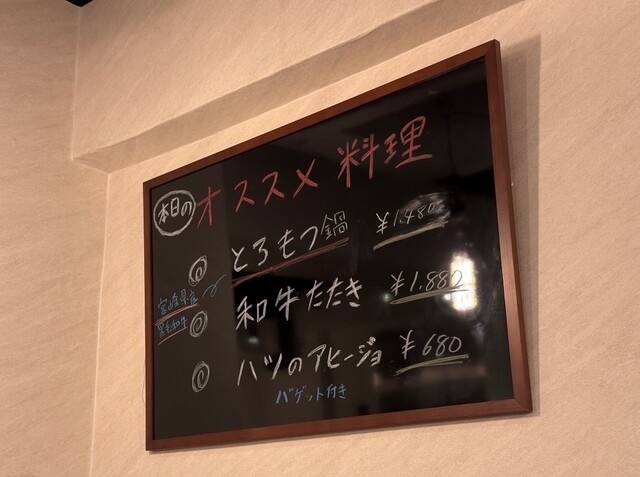 本日のオススメ料理
◎とろもつ鍋 ¥1,480
宮崎県産
黒毛和牛
◎和牛たたき ¥1,880
◎ハツのアヒージョ ¥680
バゲット付き